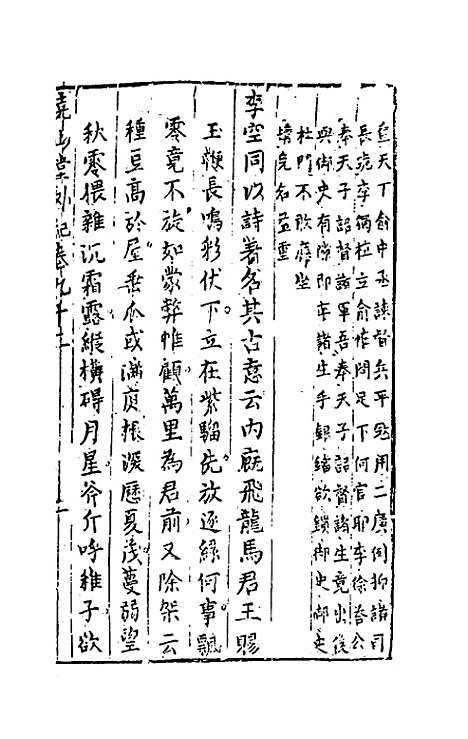 皇天下俞中丞諫督兵平寇用二廣例抑諸司
長跪李獨植立俞怪問足下何官耶李徐荅公
奉天子詔督諸軍吾奉天子詔督諸生竟出後
與御史有隙即率諸生手鋃鐺欲鎖御史御史
杜門不敢應坐
構免名益重
李空同以詩著名其古意云內廐飛龍馬君王賜
玉鞭長鳴彩伏下立在紫騮先放逐緣何事飄
零竟不旋如蒙弊帷顧萬里為君前又除架云
種豆高於屋垂瓜或滿庭振深歷夏淺蔓弱望
秋零猥雜沉霜露縱橫碍月星斧斤呼稚子欲
堯山堂外紀卷九十二